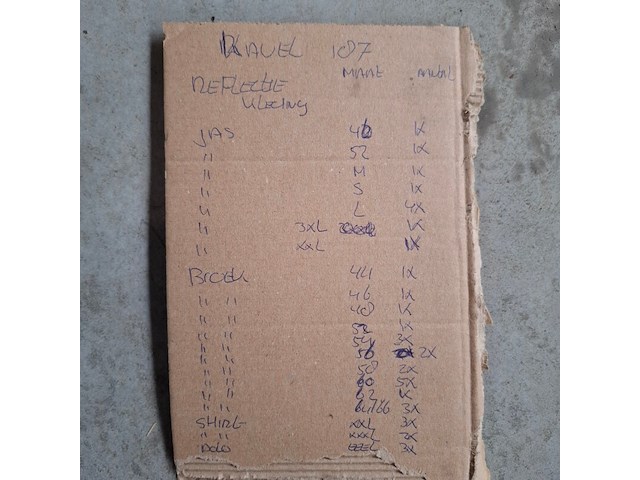 KAVEL 187
MAAT AANTAL
REFLECTIE
KLEDING
JAS 46 1X
" 52 1X
" M 1X
" S 1X
" L 4X
" 3XL 1X
" XXL 1X
BROEK 44 1X
" " 46 1X
" " 48 1X
" " 52 1X
" " 54 3X
" " 56 2X
" " 58 2X
" " 60 5X
" " 62 1X
" " 64/66 3X
SHIRT XXL 3X
" " XXXL 2X
POLO L 3X